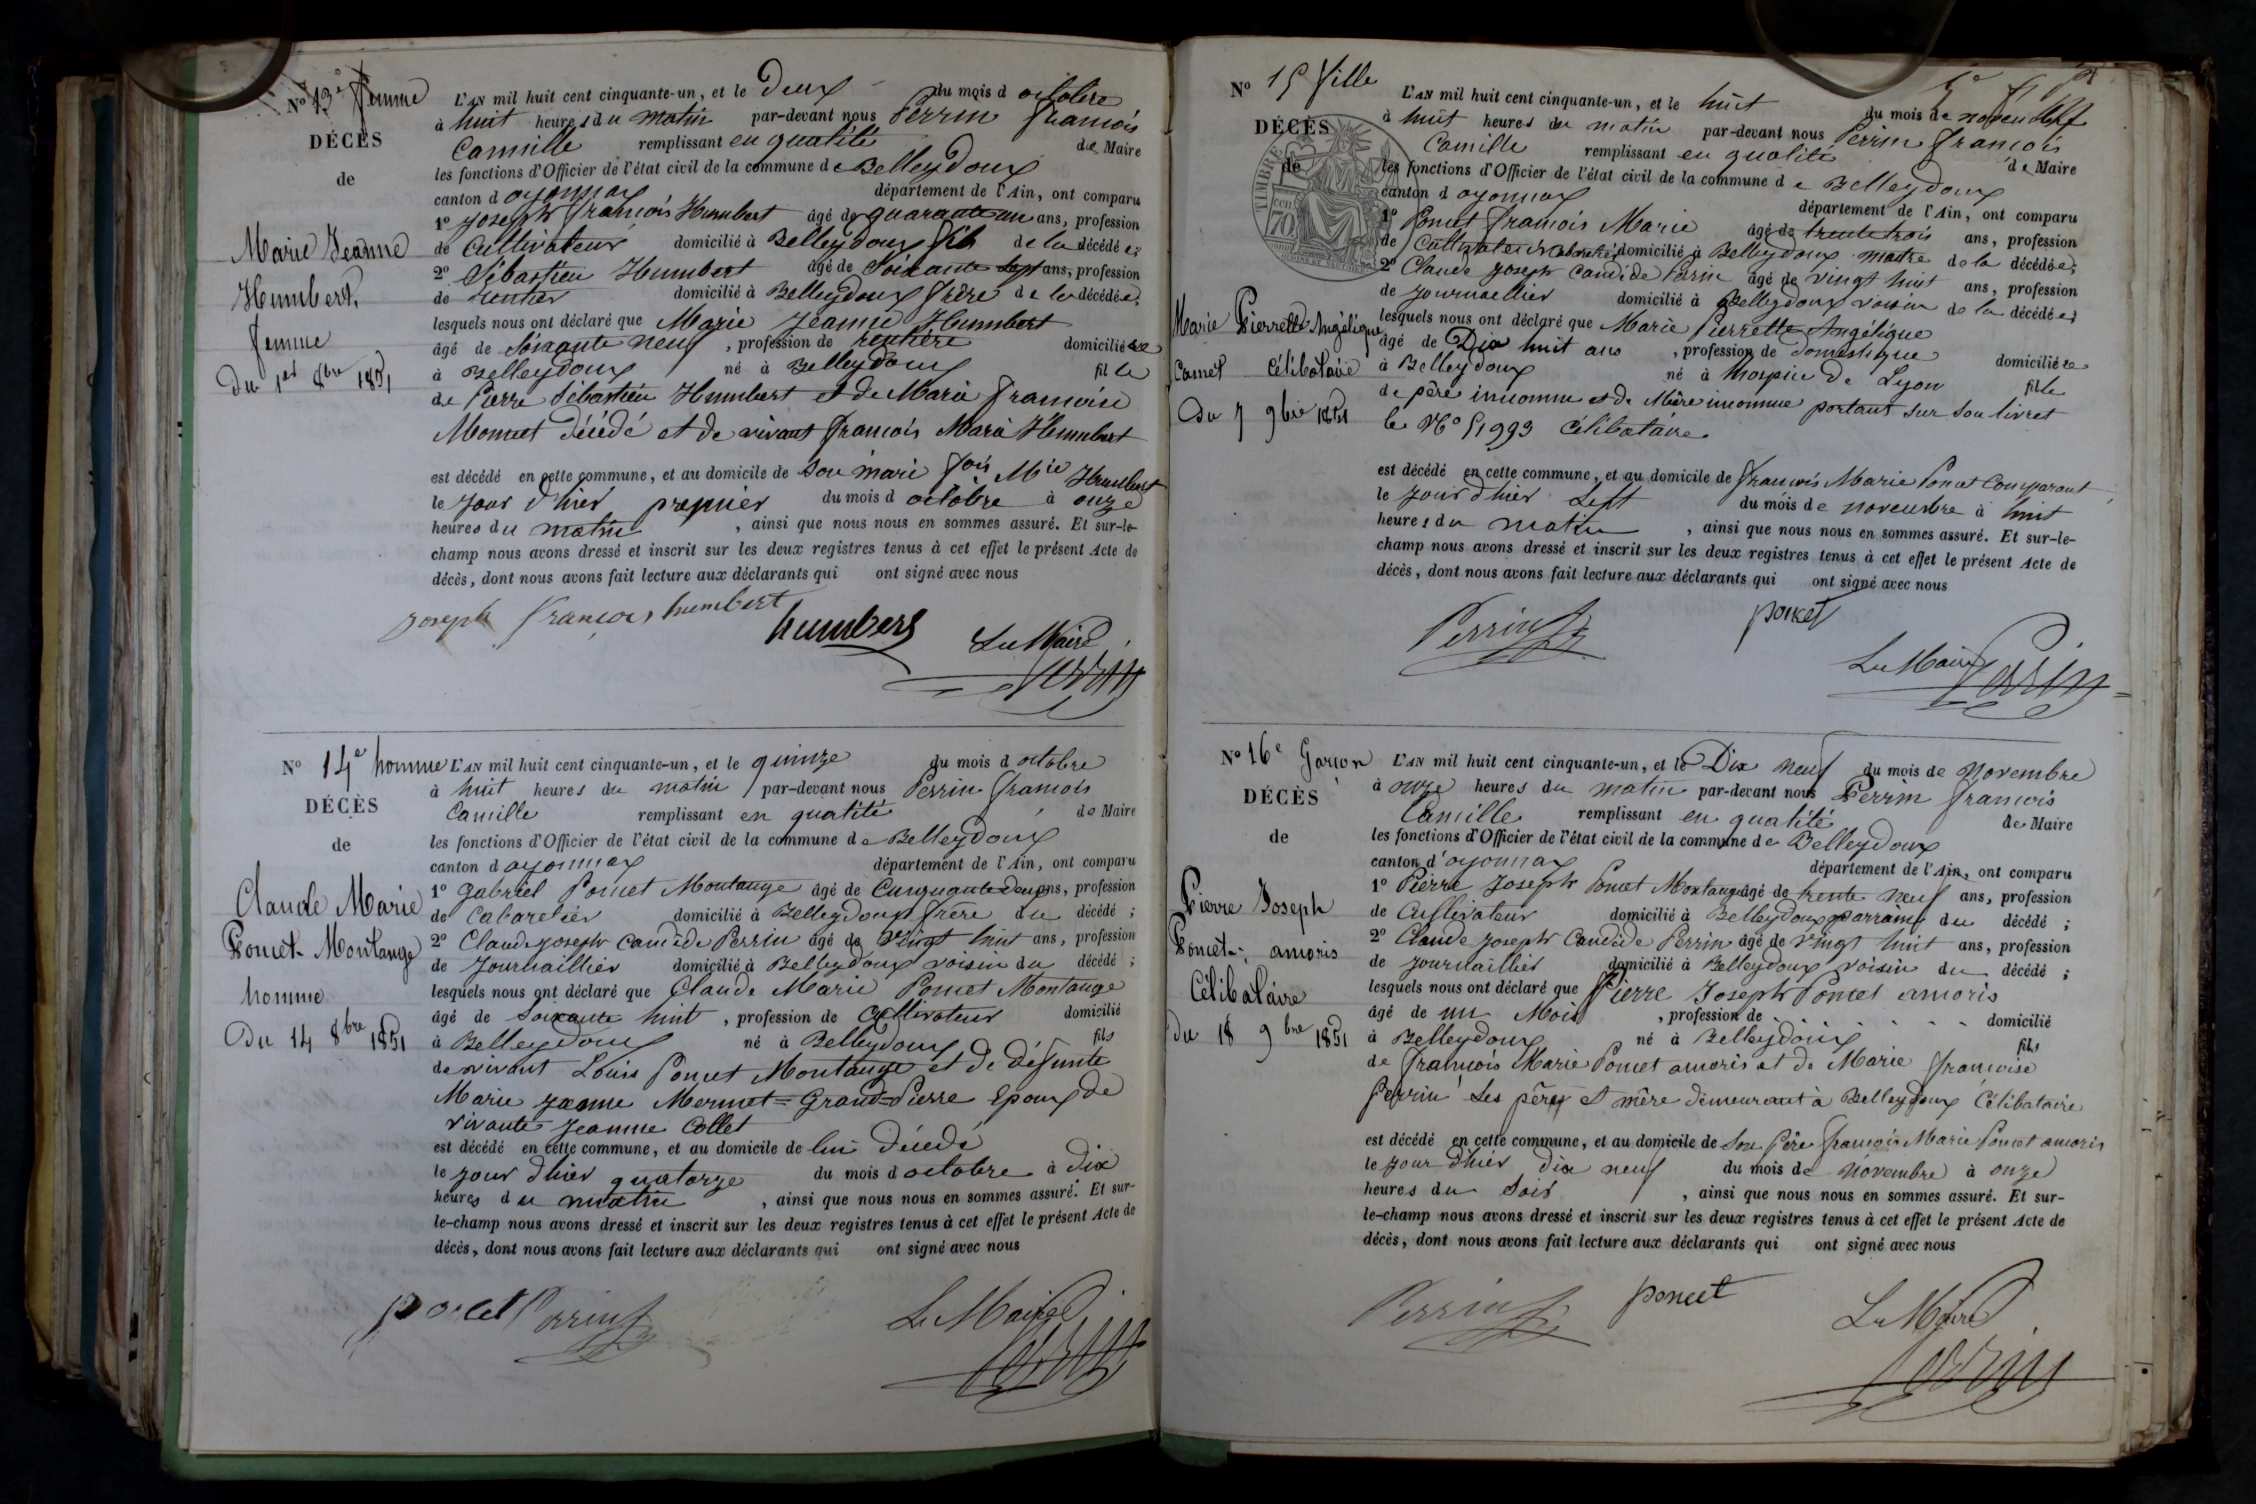 N° 13e femme
DÉCÈS
de
Marie Jeanne
Humbert,
femme
du 1er 8bre 1851
L'AN mil huit cent cinquante-un, et le deux du mois d octobre
à huit heures du matin par-devant nous Perrin françois
Camille remplissant en qualité de Maire
les fonctions d'Officier de l'état civil de la commune de Belleydoux
canton d oyonnax département de l'Ain, ont comparu
1° Joseph françois Humbert âgé de quarante un ans, profession
de Cultivateur domicilié à Belleydoux fils de la décédée;
2° Sébastien Humbert âgé de soixante sept ans, profession
de rentier domicilié à Belleydoux frère de la décédée;
lesquels nous ont déclaré que Marie Jeanne Humbert
âgé de Soixante neuf, profession de rentière domiciliée
à Belleydoux né à Belleydoux fille
de Pierre Sébastien Humbert et de Marie françoise
Momet décédé et de vivant françois Marie Humbert
est décédé en cette commune, et au domicile de son mari fois Mie Humbert
le jour d'hier premier du mois d octobre à onze
heures du matin, ainsi que nous nous en sommes assuré. Et sur-le-
champ nous avons dressé et inscrit sur les deux registres tenus à cet effet le présent Acte de
décès, dont nous avons fait lecture aux déclarants qui ont signé avec nous
joseph françois humbert humbert Le Maire
Perrin
N° 14e homme
DÉCÈS
de
Claude Marie
Poncet-Montange
homme
Du 14 8bre 1851
L'AN mil huit cent cinquante-un, et le quinze du mois d octobre
à huit heures du matin par-devant nous Perrin françois
Camille remplissant en qualité de Maire
les fonctions d'Officier de l'état civil de la commune de Belleydoux
canton d oyonnax département de l'Ain, ont comparu
1° Gabriel Poncet Montange âgé de Cinquante deux ans, profession
de Cabaretier domicilié à Belleydoux frère du décédé;
2° Claude joseph Candide Perrin âgé de vingt huit ans, profession
de Journaillier domicilié à Belleydoux voisin du décédé;
lesquels nous ont déclaré que Claude Marie Poncet Montange
âgé de soixante huit, profession de Cultivateur domicilié
à Belleydoux né à Belleydoux fils
de vivant Louis Poncet Montange et de défunte
Marie Jeanne Mermet=Grand=Pierre Epoux de
vivante Jeanne Collet
est décédé en cette commune, et au domicile de lui décédé
le jour d'hier quatorze du mois d octobre à dix
heures du matin, ainsi que nous nous en sommes assuré. Et sur-
le-champ nous avons dressé et inscrit sur les deux registres tenus à cet effet le présent Acte de
décès, dont nous avons fait lecture aux déclarants qui ont signé avec nous
poncet Perrin Le Maire
Perrin
N° 15 fille
DÉCÈS
de
TIMBRE
70
Marie Pierrette Angélique
Comet Célibataire
Du 7 9bre 1851
L'AN mil huit cent cinquante-un, et le huit du mois de novembre
à huit heures du matin par-devant nous Perrin françois
Camille remplissant en qualité de Maire
les fonctions d'Officier de l'état civil de la commune de Belleydoux
canton d oyonnax département de l'Ain, ont comparu
1° Poncet françois Marie âgé de trente trois ans, profession
de Cultivateur cabaretier domicilié à Belleydoux maitre de la décédée;
2° Claude joseph Candide Perrin âgé de vingt huit ans, profession
de journaellier domicilié à Belleydoux voisin de la décédée;
lesquels nous ont déclaré que Marie Pierrette Angélique
âgé de Dix huit ans, profession de domestique domiciliée
à Belleydoux né à hospice de Lyon fille
de père inconnu et de Mère inconnue portant sur son livret
le N° 51993 Célibataire
est décédé en cette commune, et au domicile de françois Marie Poncet Comparant
le jour d'hier sept du mois de novembre à huit
heures du matin, ainsi que nous nous en sommes assuré. Et sur-le-
champ nous avons dressé et inscrit sur les deux registres tenus à cet effet le présent Acte de
décès, dont nous avons fait lecture aux déclarants qui ont signé avec nous
Perrin poncet
Le Maire Perrin
N° 16e Garçon
DÉCÈS
de
Pierre Joseph
Poncet-amoris
Célibataire
du 18 9bre 1851
L'AN mil huit cent cinquante-un, et le Dix neuf du mois de Novembre
à onze heures du matin par-devant nous Perrin françois
Camille remplissant en qualité de Maire
les fonctions d'Officier de l'état civil de la commune de Belleydoux
canton d'oyonnax département de l'Ain, ont comparu
1° Pierre Joseph Poncet Montange âgé de trente neuf ans, profession
de Cultivateur domicilié à Belleydoux parrain du décédé;
2° Claude joseph Candide Perrin âgé de vingt huit ans, profession
de journaillier domicilié à Belleydoux voisin du décédé;
lesquels nous ont déclaré que Pierre Joseph Poncet amoris
âgé de un Mois, profession de domicilié
à Belleydoux né à Belleydoux fils
de françois Marie Poncet amoris et de Marie françoise
Perrin Ses père et mère demeurant à Belleydoux Célibataire
est décédé en cette commune, et au domicile de Son Père françois Marie Poncet amoris
le jour d'hier dix neuf du mois de Novembre à onze
heures du Soir, ainsi que nous nous en sommes assuré. Et sur-
le-champ nous avons dressé et inscrit sur les deux registres tenus à cet effet le présent Acte de
décès, dont nous avons fait lecture aux déclarants qui ont signé avec nous
Perrin poncet Le Maire
Perrin